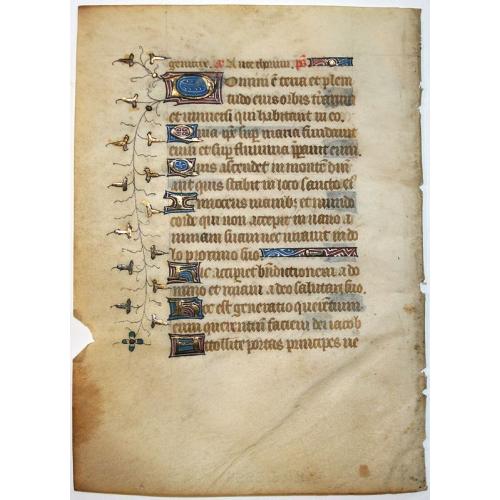 genitrix. Ante thorum. ps
Domini e terra et pleni
tudo eius orbis terrarum
et universi qui habitant in eo.
Quia ipse sup maria fundavit
eum et sup flumina pparavit eum.
Quis ascendet in montem dni
aut quis stabit in loco sancto ei
Innocens manib; et mundo
corde qui non accepit in vano a
nimam suam nec iuravit in do
lo proximo suo
Hic accipiet bndictionem a do
mino et miam a deo salutari suo.
Hec est generatio querentium
eum querentium faciem dei iacob
Attollite portas principes ve